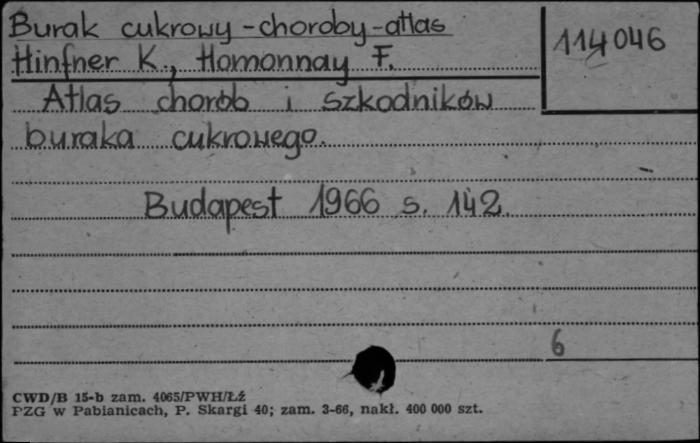 Burak cukrowy - choroby - atlas
114046
Hinfner K., Homonnay F.
Atlas chorób i szkodników
buraka cukrowego.
Budapest 1966 s. 142.
6
CWD/B 15-b zam. 4065/PWH/Łź
PZG w Pabianicach, P. Skargi 40; zam. 3-66, nakł. 400 000 szt.